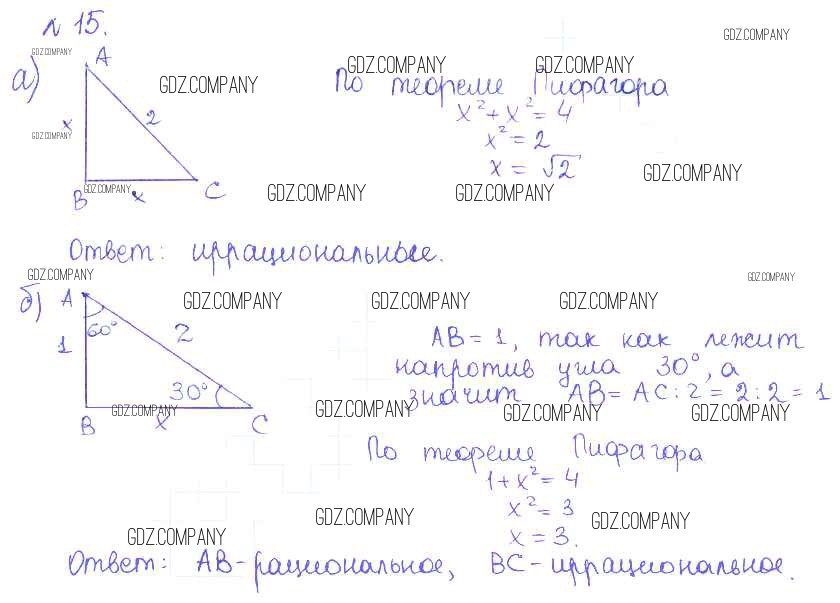 N 15.
GDZ.COMPANY
GDZ.COMPANY
а) A
GDZ.COMPANY GDZ.COMPANY GDZ.COMPANY
По теореме Пифагора
x 2
x² + x² = 4
GDZ.COMPANY
x² = 2
x = √2
GDZ.COMPANY
GDZ.COMPANY GDZ.COMPANY GDZ.COMPANY
B x C
Ответ: иррациональные.
GDZ.COMPANY GDZ.COMPANY
б) A GDZ.COMPANY GDZ.COMPANY GDZ.COMPANY
60° 2
1
AB = 1, так как лежит
напротив угла 30°, а
30°
значит AB = AC : 2 = 2 : 2 = 1
GDZ.COMPANY GDZ.COMPANY GDZ.COMPANY GDZ.COMPANY
B x C
По теореме Пифагора
1 + x² = 4
x² = 3
GDZ.COMPANY GDZ.COMPANY
x = 3.
GDZ.COMPANY
Ответ: AB - рациональное, BC - иррациональное.